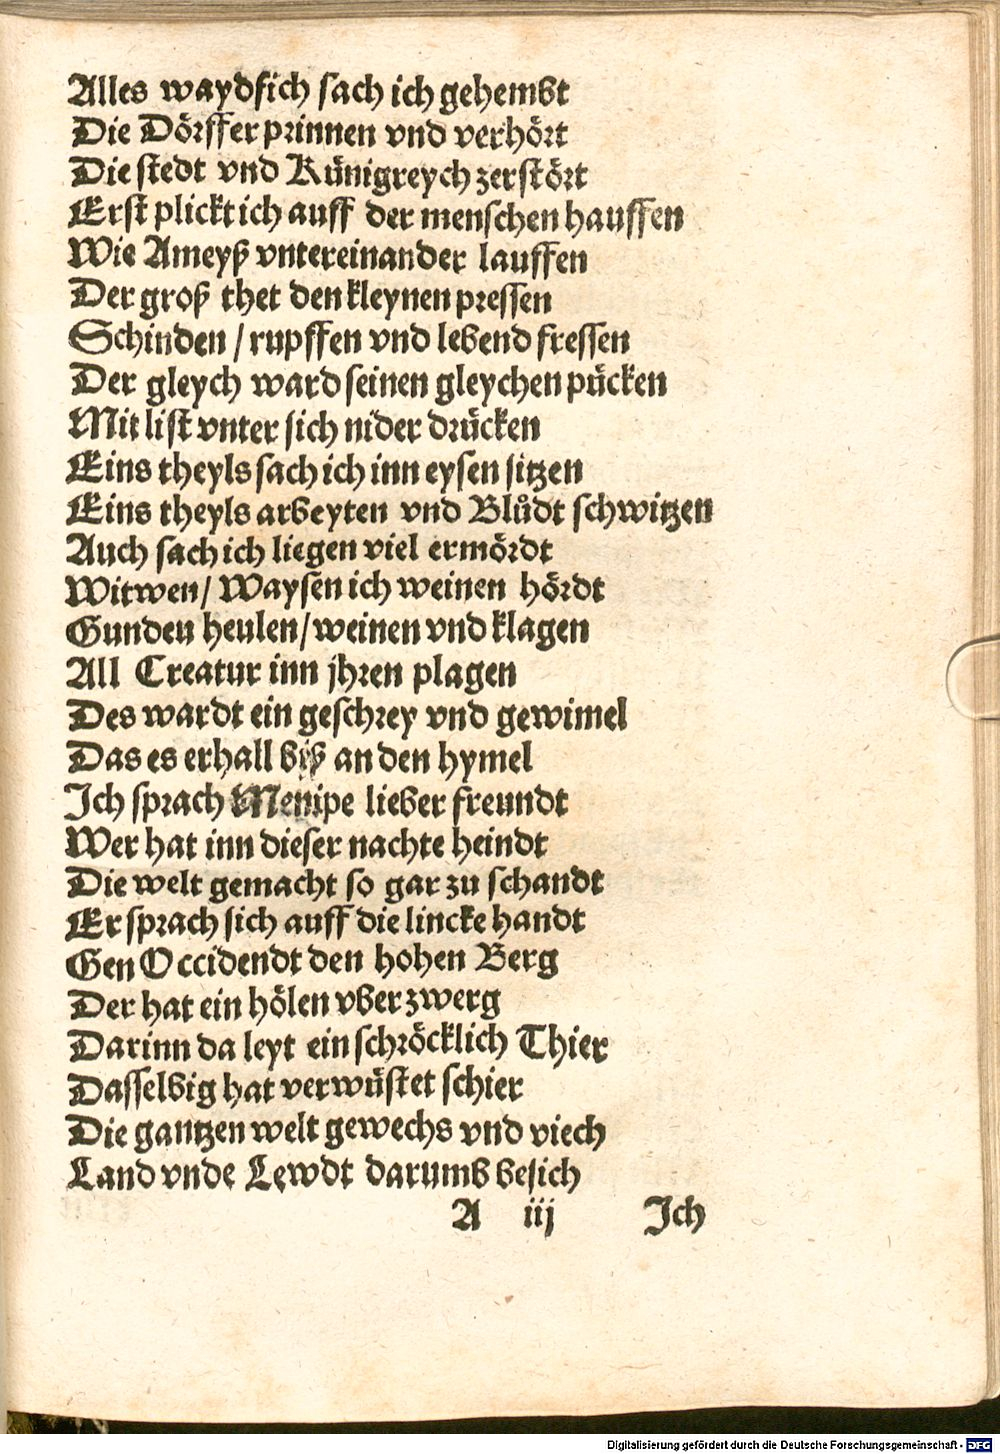 Alles waydfich sach ich gehembt
Die Dörffer prinnen vnd verhört
Die stedt vnd Künigreych zerstört
Erst plickt ich auff der menschen hauffen
Wie Ameyß vntereinander lauffen
Der groß thet den kleynen pressen
Schinden / rupffen vnd lebend fressen
Der gleych ward seinen gleychen pücken
Mit list vnter sich nider drücken
Eins theyls sach ich inn eysen sitzen
Eins theyls arbeyten vnd Blůdt schwitzen
Auch sach ich liegen viel ermördt
Witwen / Waysen ich weinen hördt
Gunden heulen / weinen vnd klagen
All Creatur inn jhren plagen
Des wardt ein geschrey vnd gewimel
Das es erhall biß an den hymel
Ich sprach Menipe lieber freundt
Wer hat inn dieser nachte heindt
Die welt gemacht so gar zu schandt
Er sprach sich auff die lincke handt
Gen Occidendt den hohen Berg
Der hat ein hölen vber zwerg
Darinn da leyt ein schröcklich Thier
Dasselbig hat verwüstet schier
Die gantzen welt gewechs vnd viech
Land vnde Lewdt darumb besich
A iij Ich
Digitalisierung gefördert durch die Deutsche Forschungsgemeinschaft - DFG